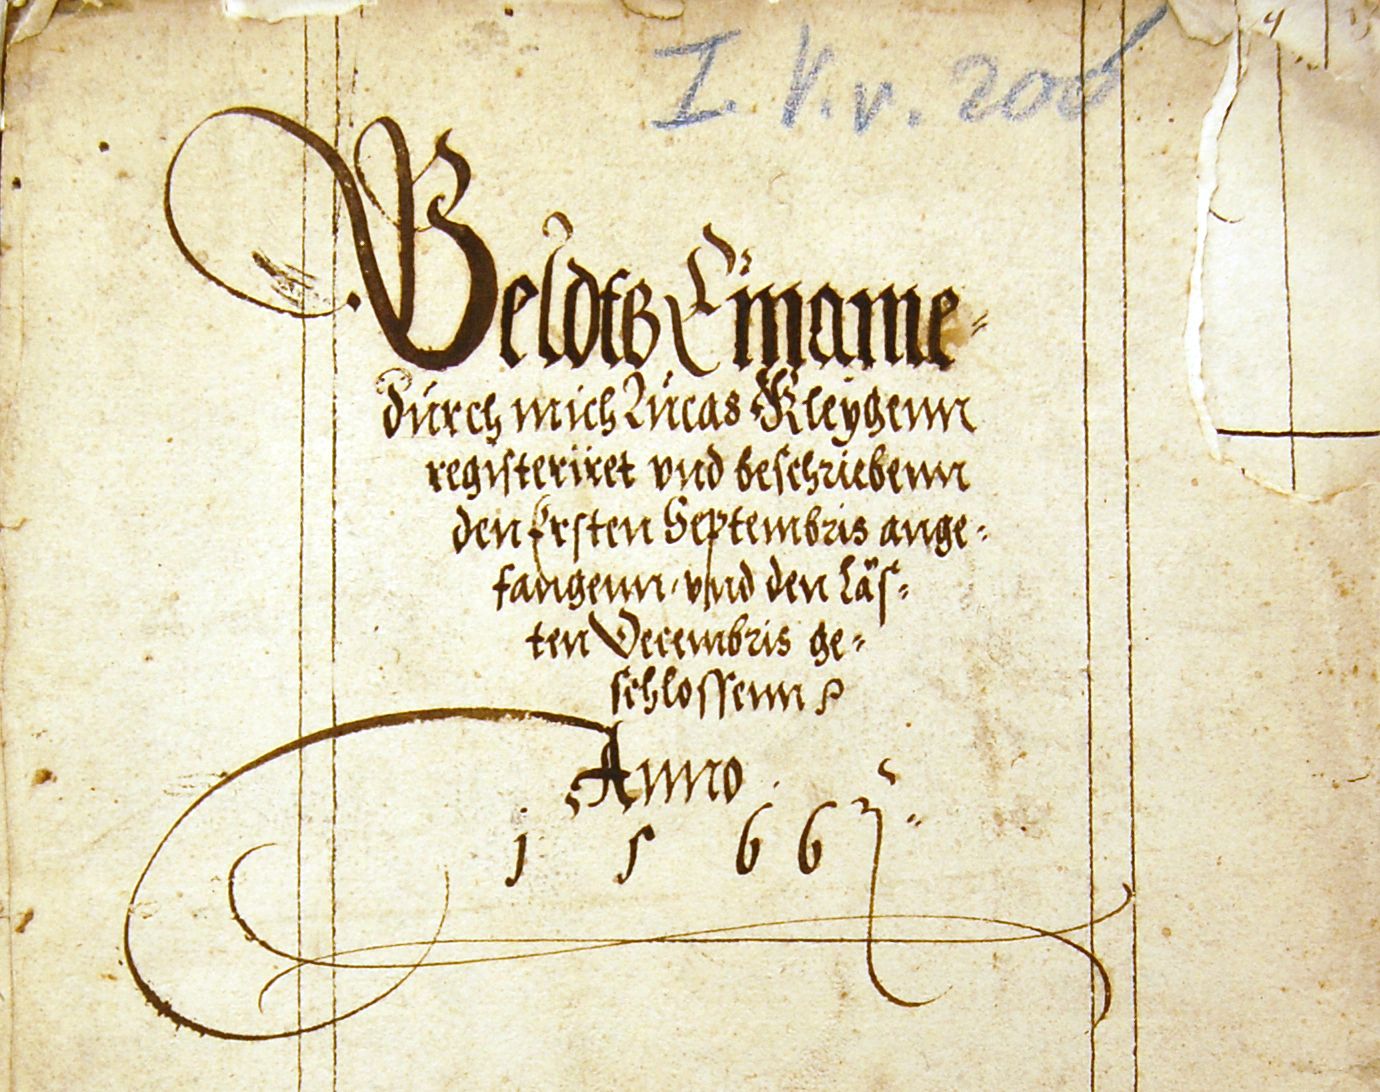 I. V. v. 200
Geldts Einame
durch mich Lucas Kleygenn
registeriret vnd beschriebenn
den Ersten Septembris ange-
fangenn vnd den Läs-
ten Decembris ge-
schlossenn
Anno
1566